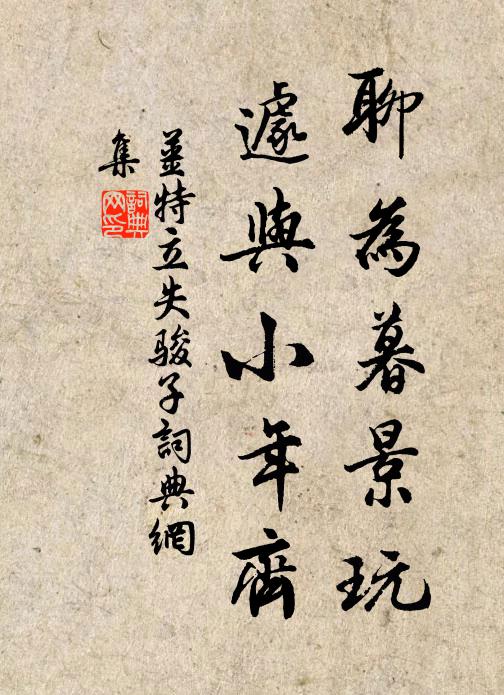 聊為暮景玩
遽與小年齊
姜特立失駿子詞典網
集
詞典
网印